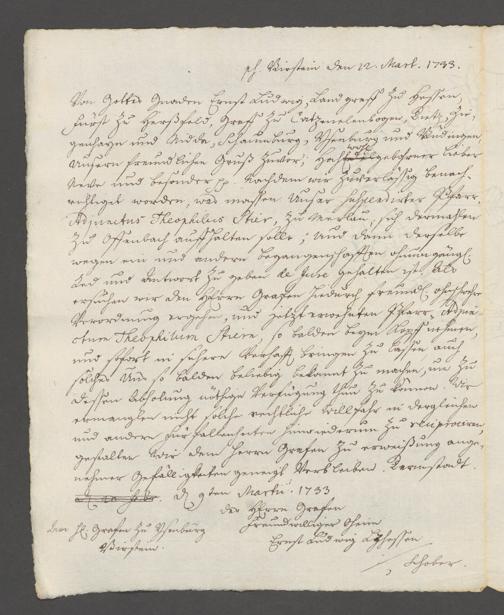 ps. Birstein den 12. Mart. 1733.
Von Gottes Gnaden Ernst Ludwig, Landgraff zu Hessen,
Fürst zu Herßfeld, Graff zu Catzenelenbogen, Dietz, Zie-
genhayn und Nidda, Schaumburg, Ysenburg und Büdingen,
Unsern freundlichen Gruß zuvor, Hochwohlgebohrner lieber
Neve und besonder p. Nachdem wir zuverläßig benach-
richtiget worden, was massen Unser Pfarr-
Adjunctus Theophilus Stier, zu Merlau, sich dermahlen
zu Offenbach auffhalten solle, und dann derselbe
wegen ein und andern begangenschafften ohnumgängl.
Red und Antwort zu geben de jure gehalten ist; Als
ersuchen wir den Herrn Grafen hiedurch freundl.
Verordnung ergehen, und jetzt erwehnten Pfarr-Adjun-
ctum Theophilum Stiern so balden beym Kopf nehmen,
und sofort in sichere Verhafft bringen zu lassen auch
solches Uns so balden beliebig bekannt zu machen, um zu
dessen Abholung nöthige Verfügung thun zu können. Wir
ermanglen nicht solche rechtliche Willfahr in dergleichen
und andern Fürfallenheiten hinwiederum zu reciprociren,
gestalten Wir dem Herrn Grafen zu erweißung ange-
nehmer Gefälligkeiten geneigt Verbleiben. Darmstadt.
d. 9ten Martii. 1733
Des Herrn Grafen
Freundwilliger Oheim
Ernst Ludwig LzHessen
dem H. Grafen zu Ysenburg
Birstein.
Schober.